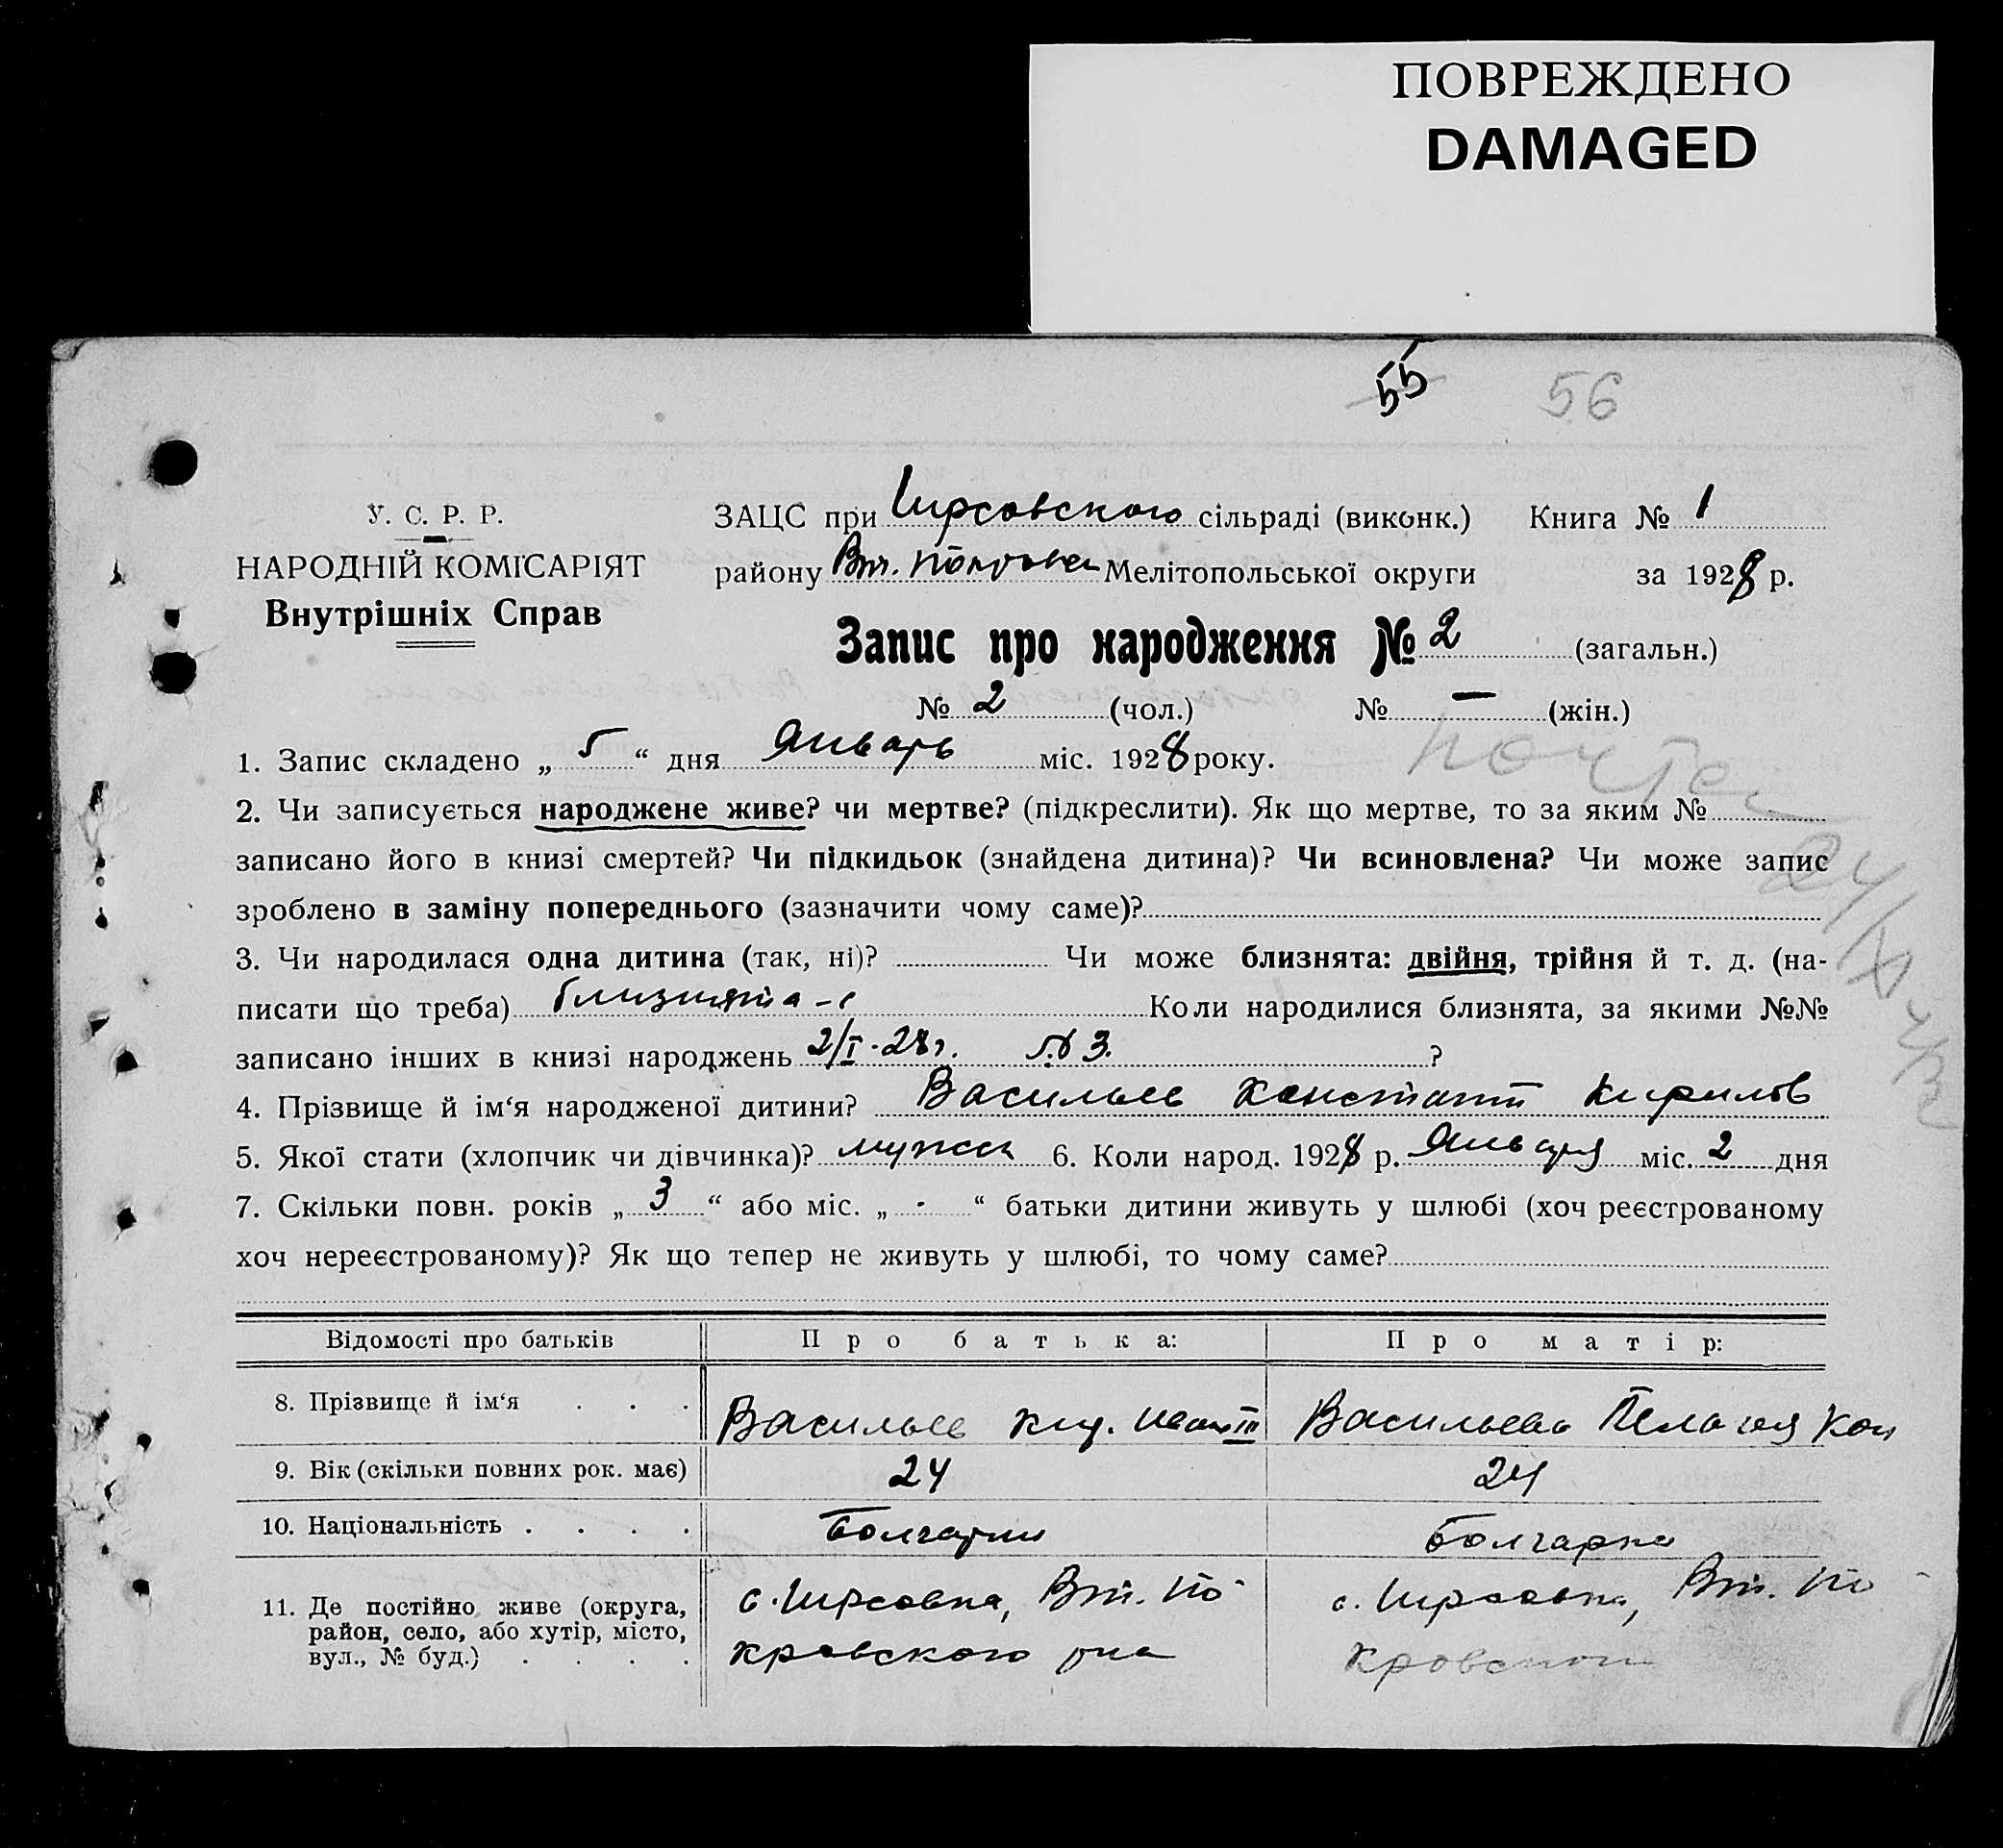 ПОВРЕЖДЕНО
DAMAGED
55 56
У. С. Р. Р.
НАРОДНІЙ КОМІСАРІЯТ
Внутрішніх Справ
ЗАЦС при Гирсовского сільраді (виконк.) Книга № 1
району Вт. Покровка Мелітопольської округи за 1928 р.
Запис про народження № 2 (загальн.)
№ 2 (чол.) № — (жін.)
1. Запис складено „ 5 “ дня Январь міс. 1928 року.
2. Чи записується народжене живе? чи мертве? (підкреслити). Як що мертве, то за яким №
записано його в книзі смертей? Чи підкидьок (знайдена дитина)? Чи всиновлена? Чи може запис
зроблено в заміну попереднього (зазначити чому саме)?
3. Чи народилася одна дитина (так, ні)? Чи може близнята: двійня, трійня й т. д. (на-
писати що треба) близнята Коли народилися близнята, за якими №№
записано інших в книзі народжень 2/I-28 г. № 3. ?
4. Прізвище й ім‘я народженої дитини? Васильев Констант Кирилов
5. Якої стати (хлопчик чи дівчинка)? мужск 6. Коли народ. 1928 р. Января міс. 2 дня
7. Скільки повн. років „ 3 “ або міс. „ - “ батьки дитини живуть у шлюбі (хоч реєстрованому
хоч нереєстрованому)? Як що тепер не живуть у шлюбі, то чому саме?
Відомості про батьків Про батька: Про матір:
8. Прізвище й ім‘я . . . Васильев Кир. Иван III Васильева Пелагея Кон
9. Вік (скільки повних рок. має) 24 24
10. Національність . . . . Болгарин Болгарка
11. Де постійно живе (округа, район, село, або хутір, місто, вул., № буд.) . . . .
с. Гирсовка, Вт. По- с. Гирсовка, Вт. По-
кровского р-на кровского